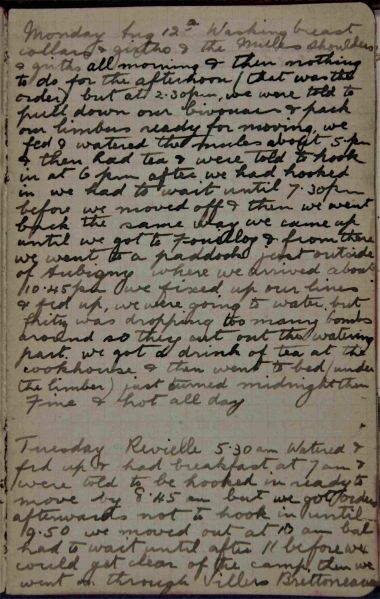 Monday Aug 12th Washing breast
collars & girths & the Mules shoulders
& girths all morning & then nothing
to do for the afternoon (that was the
order) but at 2.30pm, we were told to
pull down our bivouacs & pack
our limbers ready for moving, we
fed & watered the mules about 5pm
& then had tea & were told to hook
in at 6pm after we had hooked
in we had to wait until 7.30pm
before we moved off & then we went
back the same way we came up
until we got to Fouilloy & from there
we went to a paddock just outside
of Aubigny where we arrived about
10.45pm we fixed up our lines
& fed up, we were going to water but
Fritz was dropping too many bombs
around so they cut out the watering
part. we got a drink of tea at the
cookhouse & then went to bed (under
the limber) just turned midnight then
Fine & hot all day
Tuesday Revielle 5.30am Watered &
fed up & had breakfast at 7am &
were told to be hooked in ready to
move by 8.45 am but we got orders
afterwards not to hook in until
9.50 we moved out at 10 am but
had to wait until after 11 before we
could get clear of the camp then we
went on through Villers Brettoneaux